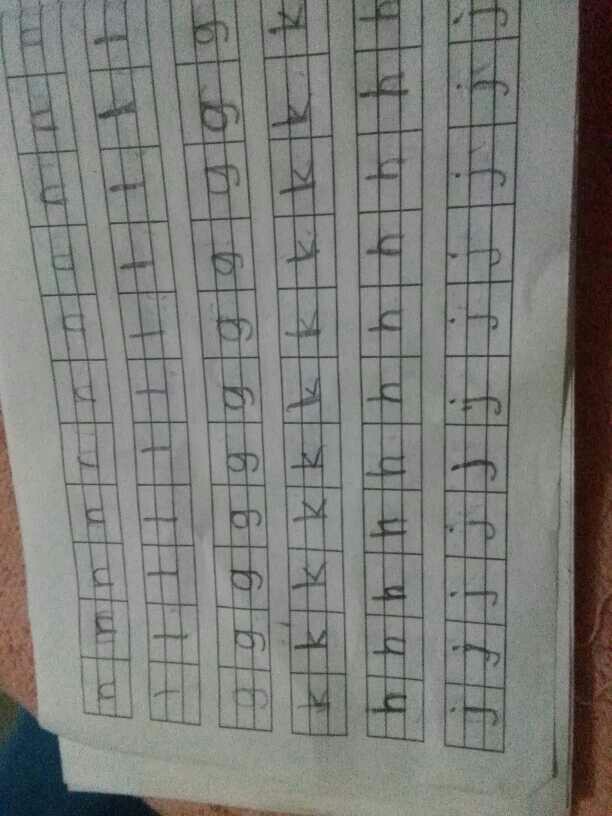 n n n n n n n n n n n
l l l l l l l l l l l
g g g g g g g g g g g
k k k k k k k k k k k
h h h h h h h h h h h
j j j j j j j j j j j